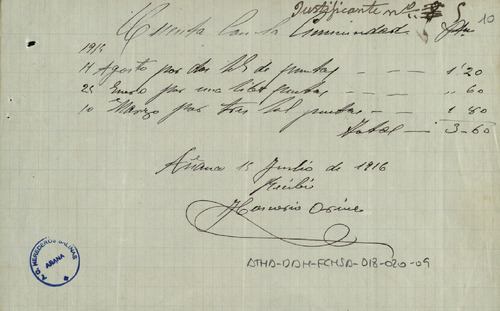 Justificante nº 5
10
Cuenta con la Comunidad
1915
11 Agosto por dos lbs de puntas 1'20
25 Enero por una libra puntas " 60
10 Marzo por tres lbs puntas 1 80
Total 3-60
Añana 15 Junio de 1916
Recibí
A. G. HEREDEROS SALINAS
AÑANA
ATHA-DAH-FCHSA-018-020-09